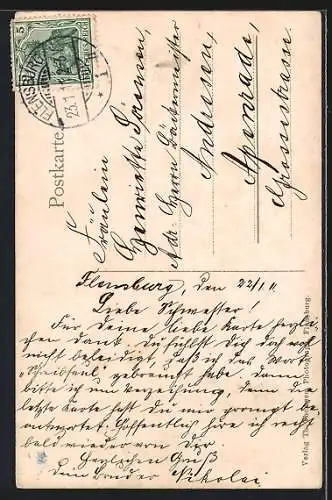 5
FLENSBURG
23.1.11
Postkarte
Fräulein
Henriette Sörensen,
Adr. Herrn Bäckermeister
Andresen,
Apenrade,
Flensburg, den 22/1 11
Liebe Schwester!
Für Deine liebe Karte herzli-
chen Dank. Du fühlst dich doch wohl
nicht beleidigt, daß ich das Wort
gebraucht habe, dann
bitte ich um Verzeihung, denn die
letzte Karte hast du mir prompt be-
antwortet. Hoffentlich höre ich recht
bald wieder von Dir.
Herzlichen Gruß
Dein Bruder Nikolai
Verlag Photograph Flensburg.